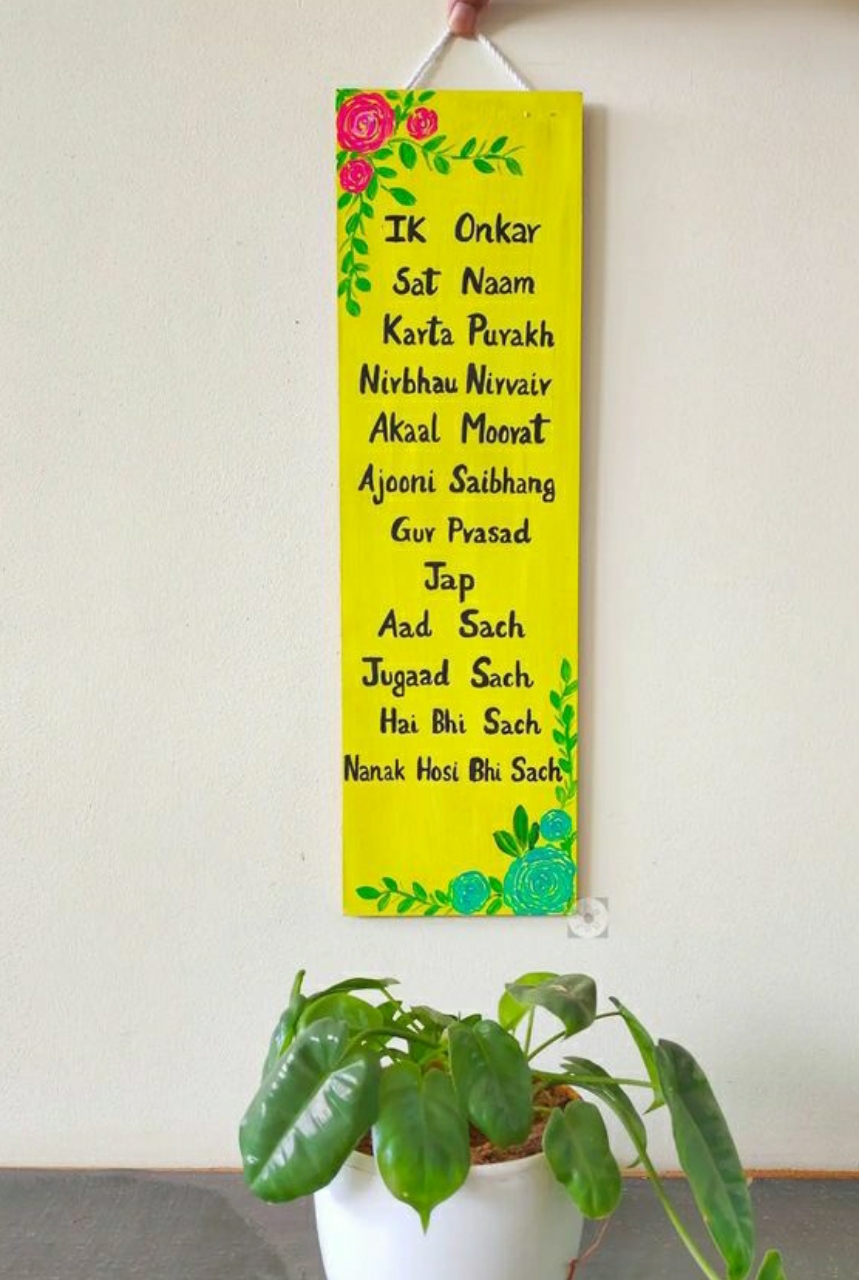 IK Onkar
Sat Naam
Karta Purakh
Nirbhau Nirvair
Akaal Moorat
Ajooni Saibhang
Gur Prasad
Jap
Aad Sach
Jugaad Sach
Hai Bhi Sach
Nanak Hosi Bhi Sach